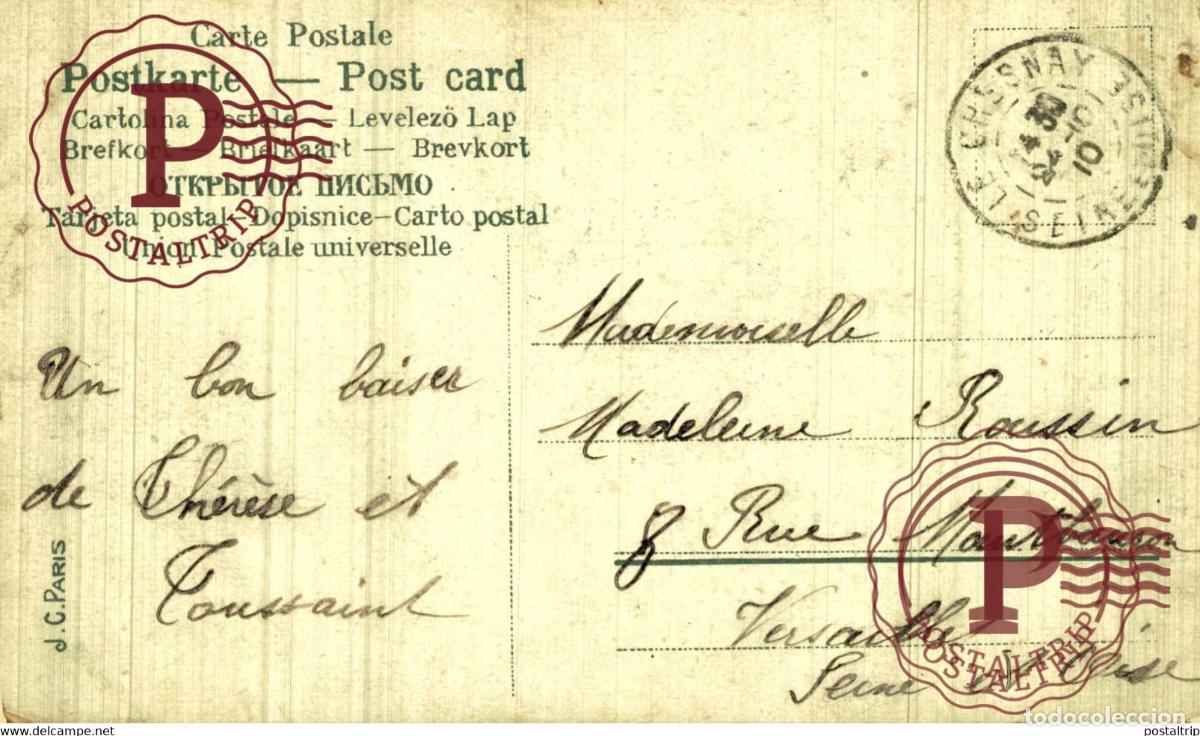 Carte Postale
Postkarte — Post card
Cartolina Postale — Levelezö Lap
Brefkort — Briefkaart — Brevkort
ОТКРЫТОЕ ПИСЬМО
Tarjeta postal-Dopisnice-Carto postal
Union Postale universelle
LE CHESNAY
SEINE
14 30
24-10
10
P
POSTALTRIP
Un bon baiser
de Thérèse et
Toussaint
J.C. PARIS
Mademoiselle
Madeleine Roussin
8 Rue
Versailles
Seine et Oise
P
POSTALTRIP
POSTALTRIP
todocoleccion
www.todocoleccion.net
postaltrip